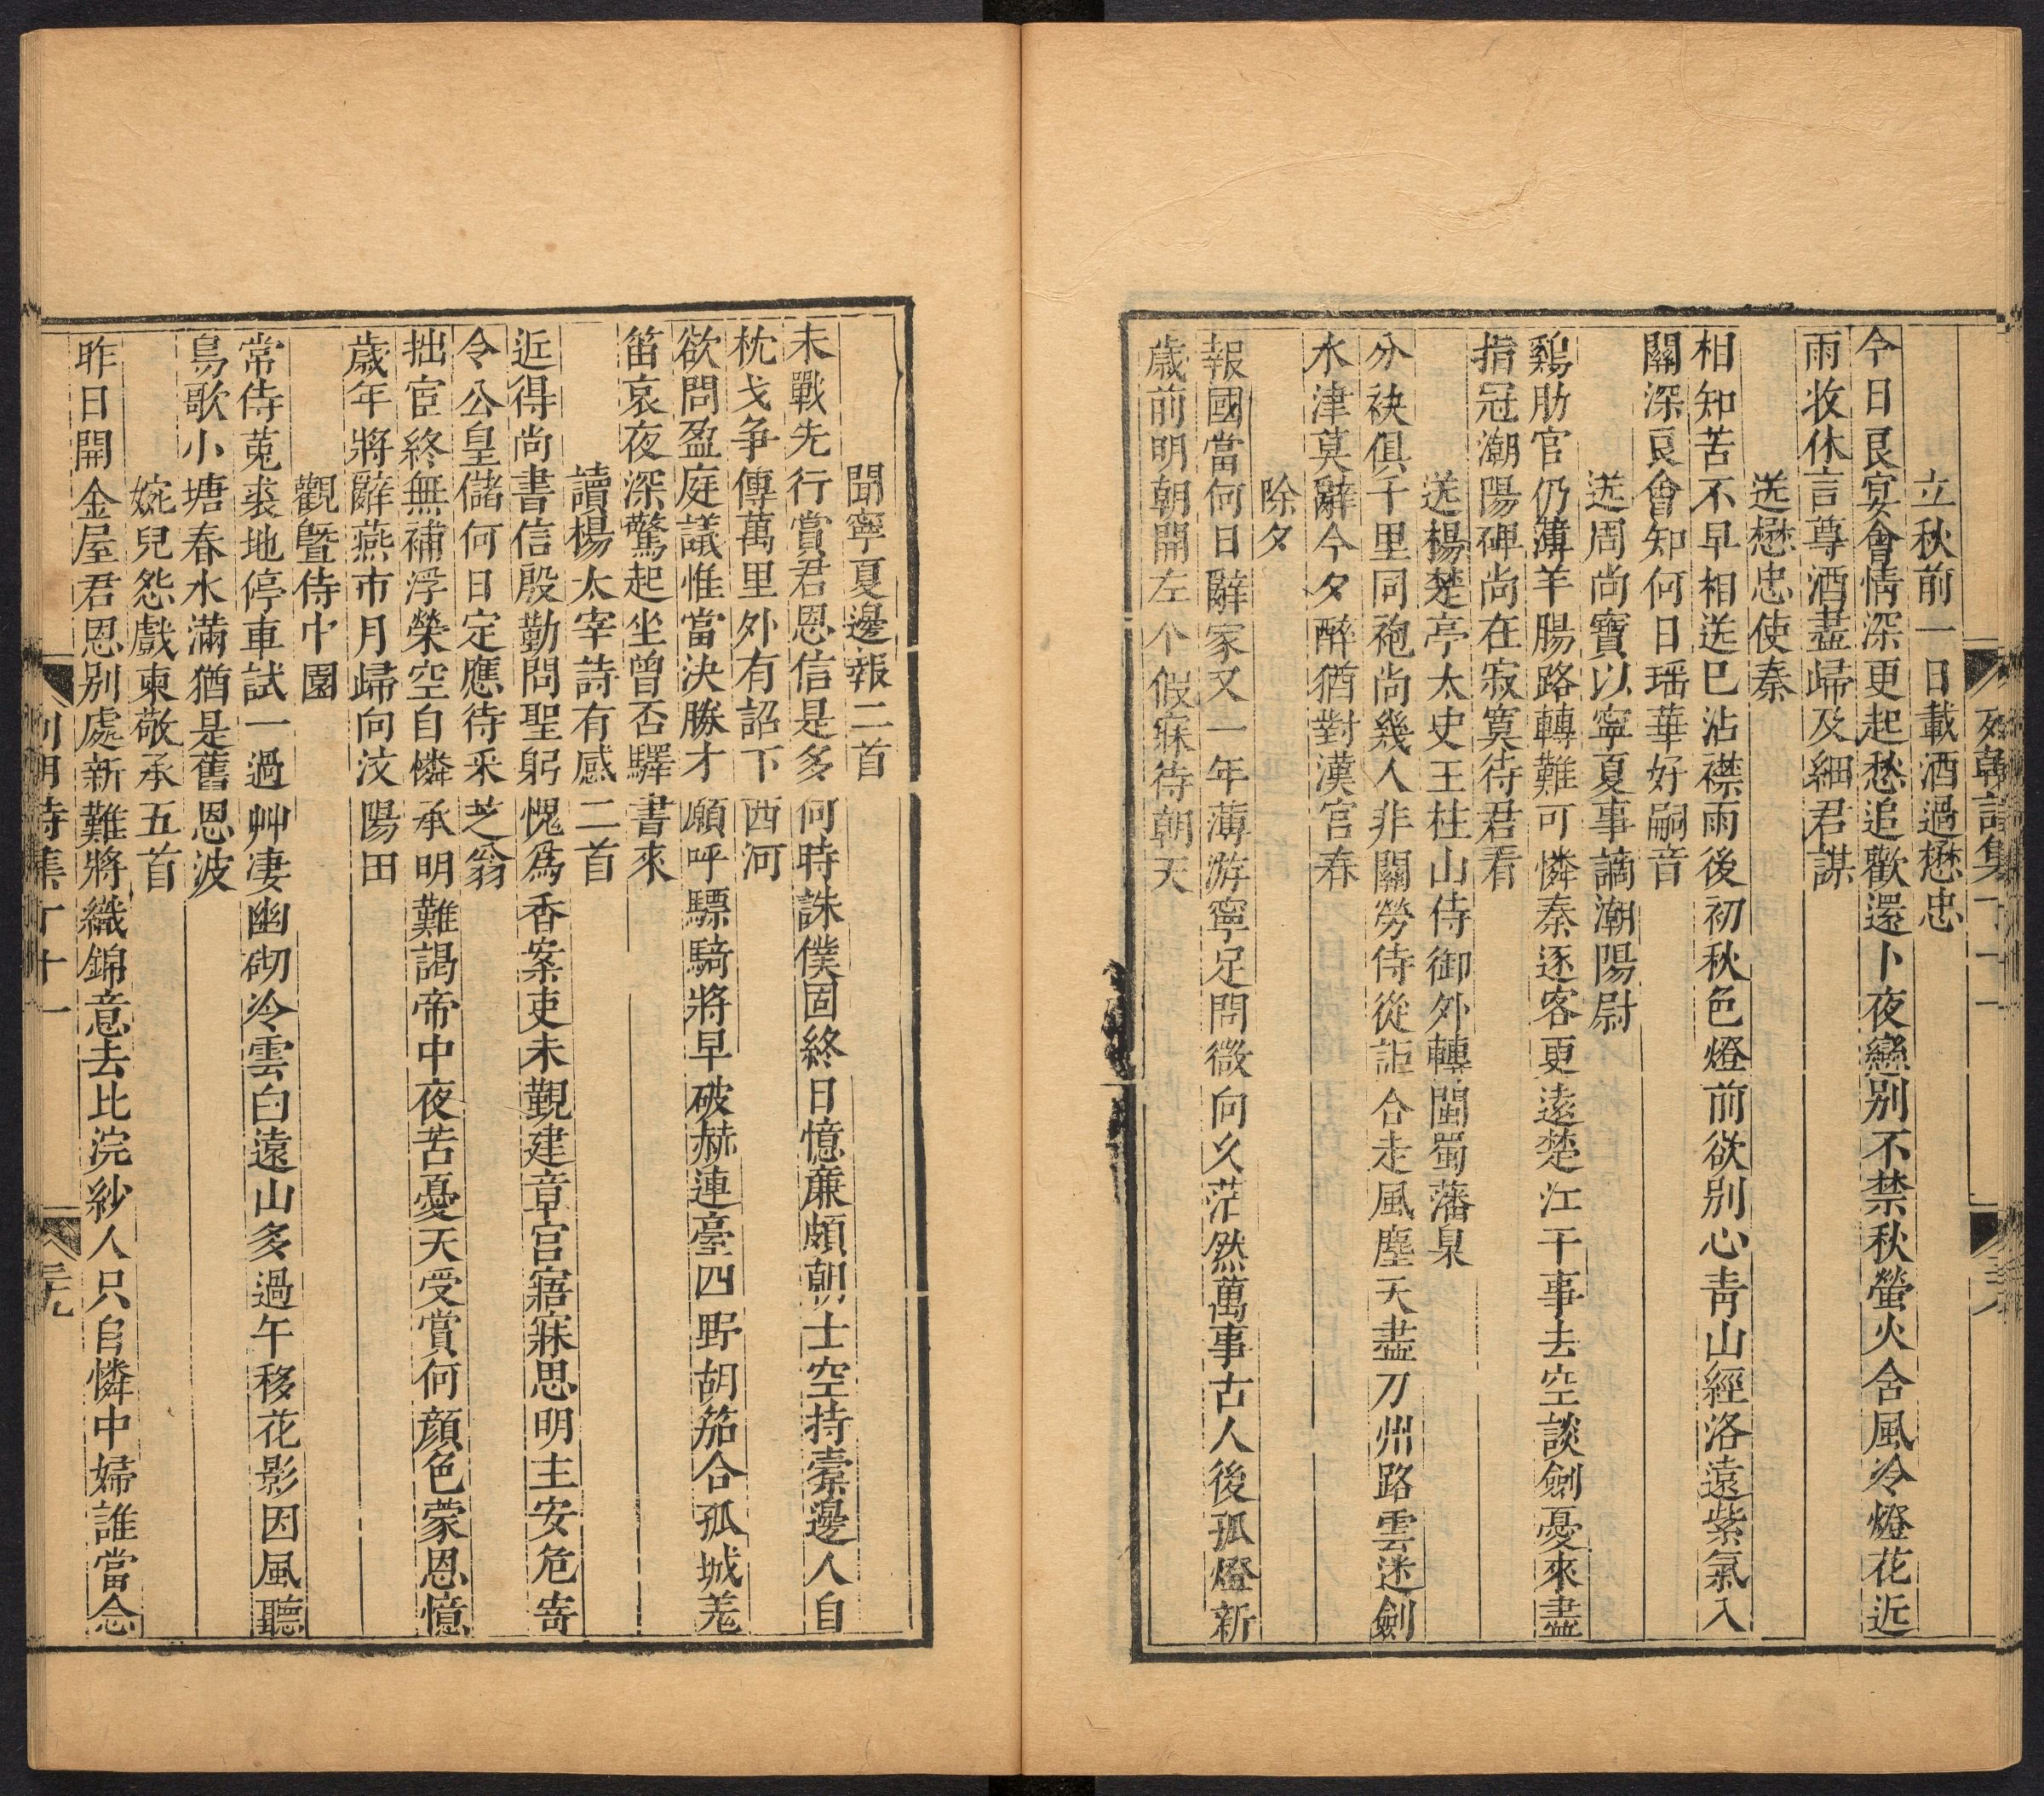 立秋前一日載酒過懋忠
今日良宴會情深更起愁追歡還卜夜戀别不禁秋螢火含風冷燈花近
雨收休言尊酒盡歸及細君謀
送懋忠使秦
相知苦不早相送巳沾襟雨後初秋色燈前欲别心青山經洛遠紫氣入
關深良會知何日瑶華好嗣音
送周尚寶以寧夏事謫潮陽尉
鷄肋官仍薄羊腸路轉難可憐秦逐客更遠楚江干事去空談劍憂來盡
指冠潮陽碑尚在寂寞待君看
送楊楚亭太史王柱山侍御外轉閩蜀藩臬
分袂俱千里同袍尚幾人非關勞侍從詎合走風塵天盡刀州路雲迷劍
水津莫辭今夕醉猶對漢宫春
除夕
報國當何日辭家又一年薄游寧足問微向久茫然萬事古人後孤燈新
歲前明朝開左个假寐待朝天
列朝詩集丁十一
三八
聞寧夏邊報二首
未戰先行賞君恩信是多何時誅僕固終日憶亷頗朝士空持橐邊人自
枕戈争傳萬里外有詔下西河
欲問盈庭議惟當決勝才願呼驃騎將早破赫連臺四野胡笳合孤城羌
笛哀夜深驚起坐曾否驛書來
讀楊太宰詩有感二首
近得尚書信殷勤問聖躬愧爲香案吏未覲建章宫寤寐思明主安危寄
令公皇儲何日定應待采芝翁
拙宦終無補浮榮空自憐承明難謁帝中夜苦憂天受賞何顔色蒙恩憶
歲年將辭燕市月歸向汶陽田
觀曁侍中園
常侍菟裘地停車試一過艸凄幽砌冷雲白遠山多過午移花影因風聽
鳥歌小塘春水滿猶是舊恩波
婉兒怨戲柬敬承五首
昨日開金屋君恩别處新難將織錦意去比浣紗人只自憐中婦誰當念
列朝詩集丁十一
三九